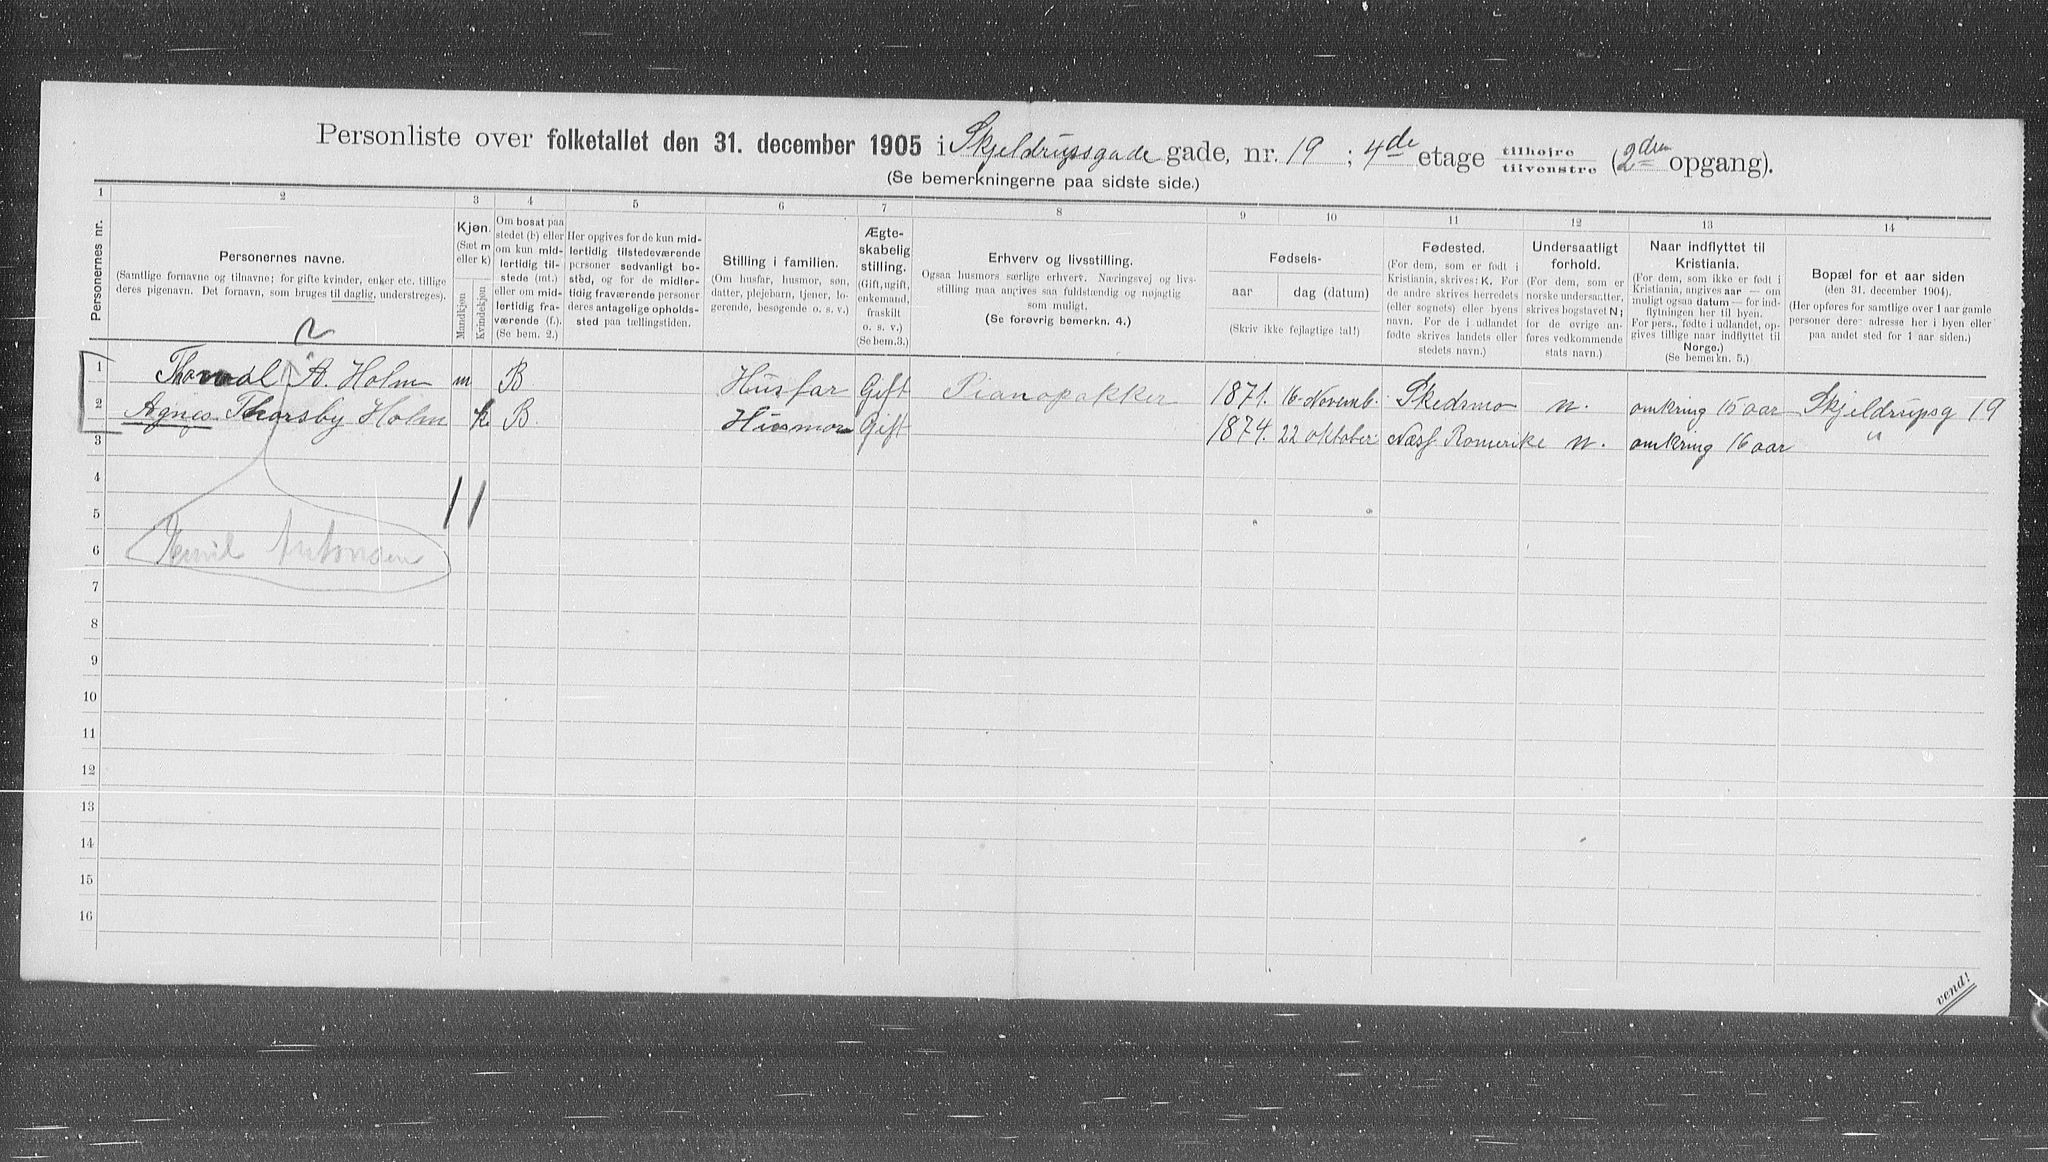 Personliste over folketallet den 31. december 1905 i Skjeldrupsgade gade, nr. 19 ; 4de etage tilhøjre tilvenstre (2den opgang).
(Se bemerkningerne paa sidste side.)
1 2 3 4 5 6 7 8 9 10 11 12 13 14
Personernes nr.
Personernes navne.
(Samtlige fornavne og tilnavne; for gifte kvinder, enker etc. tillige
deres pigenavn. Det fornavn, som bruges til daglig, understreges).
Kjøn.
(Sæt m
eller k)
Mandkjøn
Kvindekjøn
Om bosat paa
stedet (b) eller
om kun mid-
lertidig til-
stede (mt.)
eller om mid-
lertidig fra-
værende (f.).
(Se bem. 2.)
Her opgives for de kun mid-
lertidig tilstedeværende
personer sedvanligt bo-
sted, og for de midler-
tidig fraværende personer
deres antagelige opholds-
sted paa tællingstiden.
Stilling i familien.
(Om husfar, husmor, søn,
datter, plejebarn, tjener, lo-
gerende, besøgende o. s. v.)
Ægte-
skabelig
stilling.
(Gift, ugift,
enkemand,
fraskilt
o. s. v.)
(Se bem.3.)
Erhverv og livsstilling.
Ogsaa husmors særlige erhverv. Næringsvej og livs-
stilling maa angives saa fuldstændig og nøjagtig
som muligt.
(Se forøvrig bemerkn. 4.)
Fødsels-
aar
dag (datum)
(Skriv ikke fejlagtige tal!)
Fødested.
(For dem, som er født i
Kristiania, skrives: K. For
de andre skrives herredets
(eller sognets) eller byens
navn. For de i udlandet
fødte skrives landets eller
stedets navn.)
Undersaatligt
forhold.
(For dem, som er
norske undersaatter,
skrives bogstavet N;
for de øvrige an-
føres vedkommende
stats navn.)
Naar indflyttet til
Kristiania.
(For dem, som ikke er født i
Kristiania, angives aar — om
muligt ogsaa datum — for ind-
flytningen her til byen.
For pers., fødte i udlandet, op-
gives tillige naar indflyttet til
Norge.)
(Se bemerkn. 5.)
Bopæl for et aar siden
(den 31. december 1904).
(Her opføres for samtlige over 1 aar gamle
personer deres adresse her i byen eller
paa andet sted for 1 aar siden.)
2
1 Thorvald A. Holm m B Husfar Gift Pianopakker 1871. 16 Novemb. Skedsmo n. omkring 15 aar Skjeldrupsg 19
2 Agnes Thorsby Holm k B. Husmor Gift 1874. 22 oktober Næs Romerike n. omkring 16 aar "
3
4
1 1
5
6 Emil Antonsen
7
8
9
10
11
12
13
14
15
16
vend!